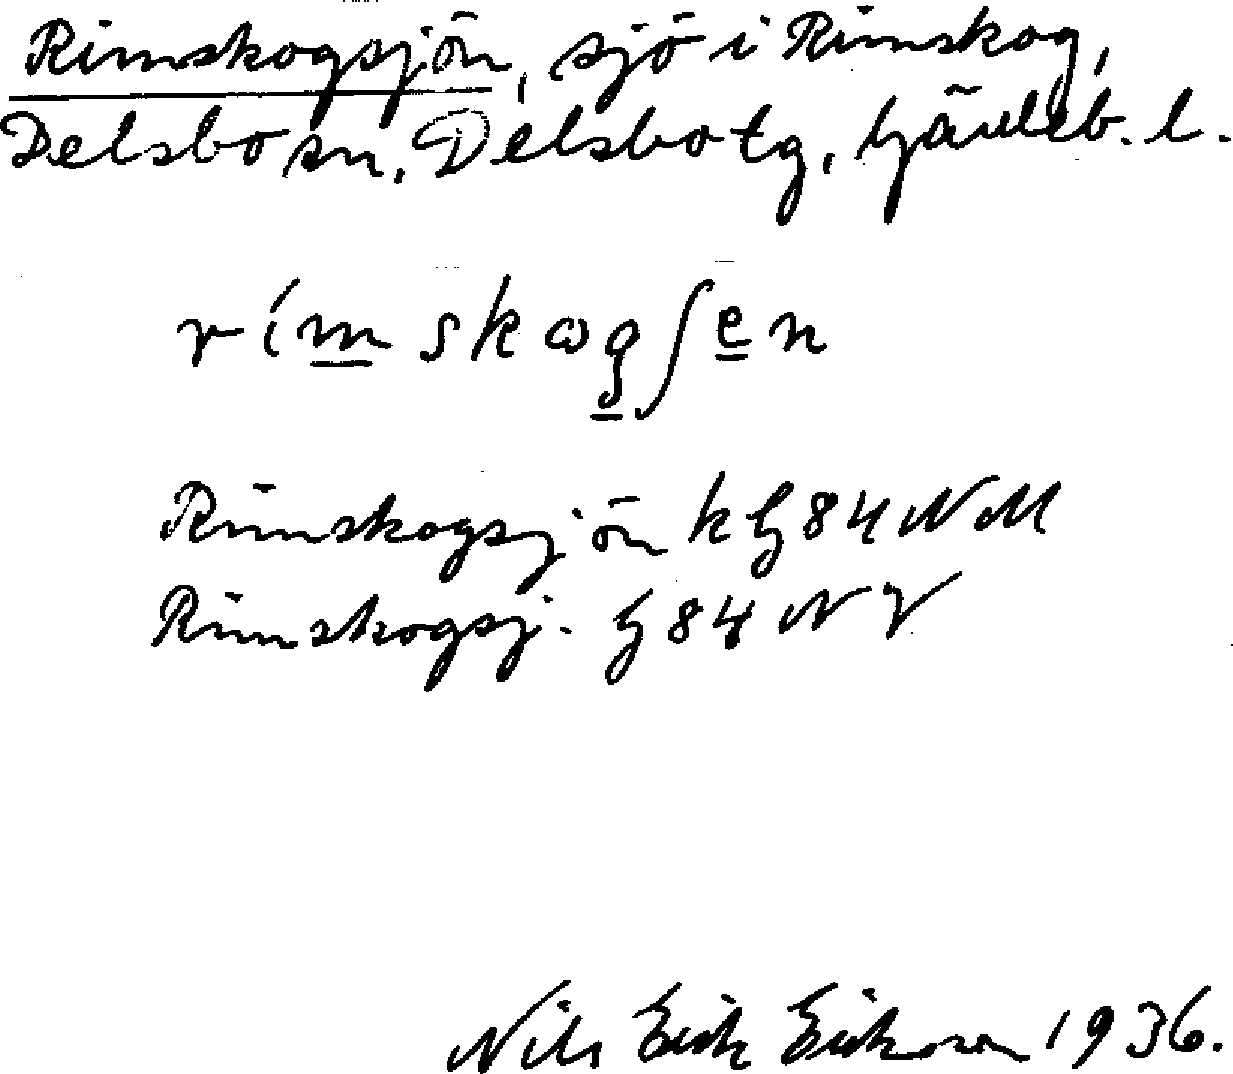 Rimskogsjön, sjö i Rimskog,
Delsbo sn, Delsbo tg, Gävleb. l.
rímskωgʃen
Rimskogsjön k G 84 NM
Rimskogsj. G 84 NV
Nils Erik Erikson 1936.